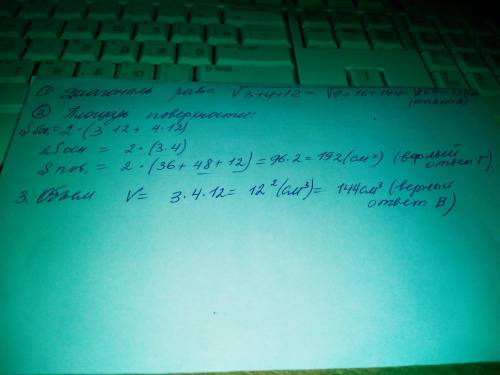 ① Диагональ равна √3+4+12 = √9+16+144 = √169 = 13см
(ответ В)
② Площадь поверхности:
Sбок = 2·(3·12 + 4·12)
2Sосн = 2·(3·4)
Sпов. = 2·(36+48+12) = 96·2 = 192(см²) (верный
ответ Г)
3. Объем V = 3·4·12 = 12²(см³) = 144см³ (верный
ответ В)